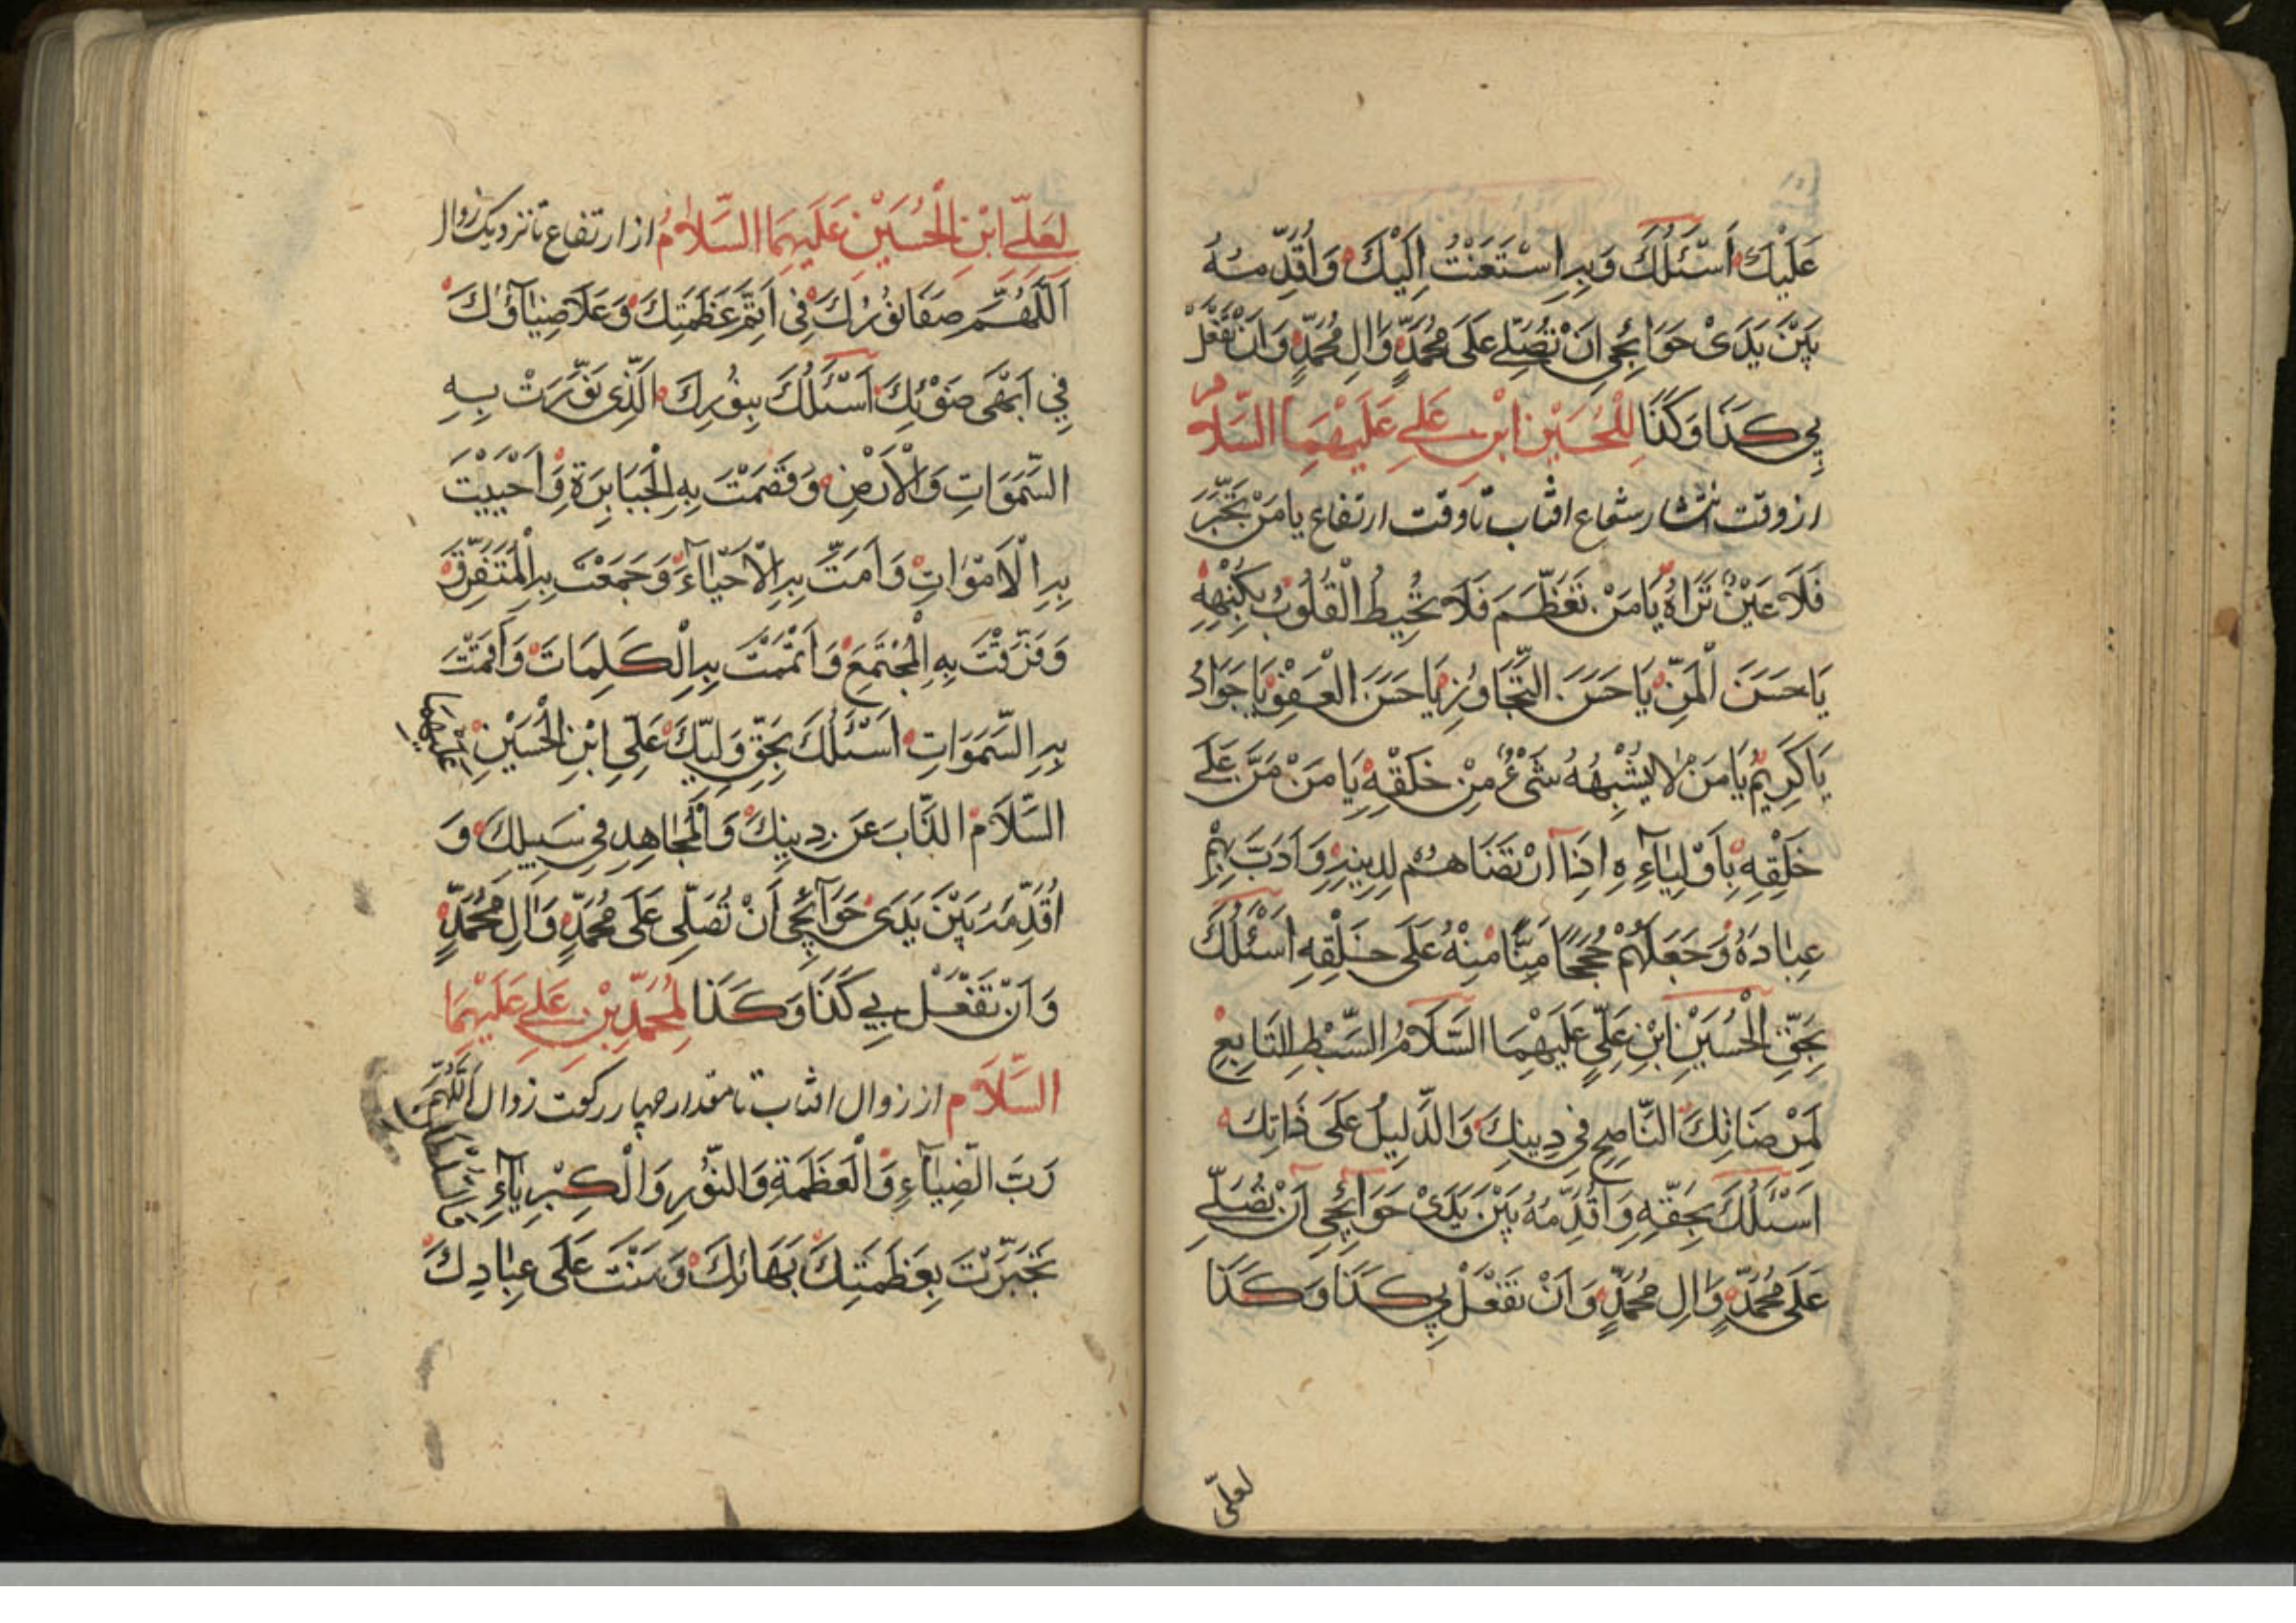 عَلَيْكَ اَسْئَلُكَ وَبِهِ اسْتَعَنْتُ اِلَيْكَ وَاُقَدِّمُهُ
بَيْنَ يَدَىْ حَوَائِجِي اَنْ تُصَلِّيَ عَلَى مُحَمَّدٍ وَالِ مُحَمَّدٍ وَاَنْ تَفْعَلَ
بِي كَذَا وَكَذَا لِلْحُسَيْنِ ابْنِ عَلِيٍ عَلَيْهِمَا السَّلَامُ
از وقت انتشار شعاع افتاب تا وقت ارتفاع يا مَنْ تَجَبَّرَ
فَلَا عَيْنٌ تَرَاهُ يَا مَنْ تَعَظَّمَ فَلَا تُحِيطُ الْقُلُوبُ بِكُنْهِهِ
يَا حَسَنَ الْمَنِّ يَا حَسَنَ التَّجَاوُزِ يَا حَسَنَ الْعَفْوِ يَا جَوَادُ
يَا كَرِيمُ يَا مَنْ لَا يُشْبِهُهُ شَىْءٌ مِنْ خَلْقِهِ يَا مَنْ مَنَّ عَلَى
خَلْقِهِ بِاَوْلِيَآءِهِ اِذَا ارْتَضَاهُمْ لِدِينِهِ وَاَدَّبَ بِهِمْ
عِبَادَهُ وَجَعَلَهُمْ حُجَجًا مَنًّا مِنْهُ عَلَى خَلْقِهِ اَسْئَلُكَ
بِحَقِّ الْحُسَيْنِ ابْنِ عَلِيٍّ عَلَيْهِمَا السَّلَامُ السِّبْطِ التَّابِعِ
لِمَرْضَاتِكَ النَّاصِحِ فِي دِينِكَ وَالدَّلِيلُ عَلَى ذَاتِكَ
اَسْئَلُكَ بِحَقِّهِ وَاُقَدِّمُهُ بَيْنَ يَدَىْ حَوَآئِجِي اَنْ تُصَلِّيَ
عَلَى مُحَمَّدٍ وَالِ مُحَمَّدٍ وَاَنْ تَفْعَلَ بِي كَذَا وَكَذَا
لعلّى
لِعَلِيِّ ابْنِ الْحُسَيْنِ عَلَيْهِمَا السَّلَامُ از ارتفاع تا نزديك زوال
اَللّٰهُمَّ صَفَا نُورُكَ فِي اَتَمِّ عَظَمَتِكَ وَعَلَا ضِيَآؤُكَ
فِي اَبْهَى ضَوْئِكَ اَسْئَلُكَ بِنُورِكَ الَّذِي نَوَّرَتْ بِهِ
السَّمَوَاتِ وَالْاَرْضِ وَقَصَمْتَ بِهِ الْجَبَابِرَةَ وَاَحْيَيْتَ
بِهِ الْاَمْوَاتِ وَاَمَتَّ بِهِ الْاَحْيَآءَ وَجَمَعْتَ بِهِ الْمُتَفَرِّقَ
وَفَرَّقْتَ بِهِ الْمُجْتَمَعَ وَاَتْمَمْتَ بِهِ الْكَلِمَاتَ وَاَقَمْتَ
بِهِ السَّمَوَاتِ اَسْئَلُكَ بِحَقِّ وَلِيِّكَ عَلِيِّ ابْنِ الْحُسَيْنِ عَلَيْهِمَا
السَّلَامُ الذَّابَ عَنْ دِينِكَ وَالْمُجَاهِدِ فِي سَبِيلِكَ وَ
اُقَدِّمُهُ بَيْنَ يَدَىْ حَوَآئِجِي اَنْ تُصَلِّيَ عَلَى مُحَمَّدٍ وَالِ مُحَمَّدٍ
وَاَنْ تَفْعَلَ بِي كَذَا وَكَذَا لِمُحَمَّدِ بْنِ عَلِيٍ عَلَيْهِمَا
السَّلَام از زوال افتاب تا مقدار چهار ركعت زوال اَللّٰهُمَّ
رَبَّ الضِّيَآءِ وَالْعَظَمَةِ وَالنُّورِ وَالْكِبْرِيَآءِ وَالسُّلْطَانِ
تَجَبَّرْتَ بِعَظَمَتِكَ بَهَائِكَ وَمَنَنْتَ عَلَى عِبَادِكَ